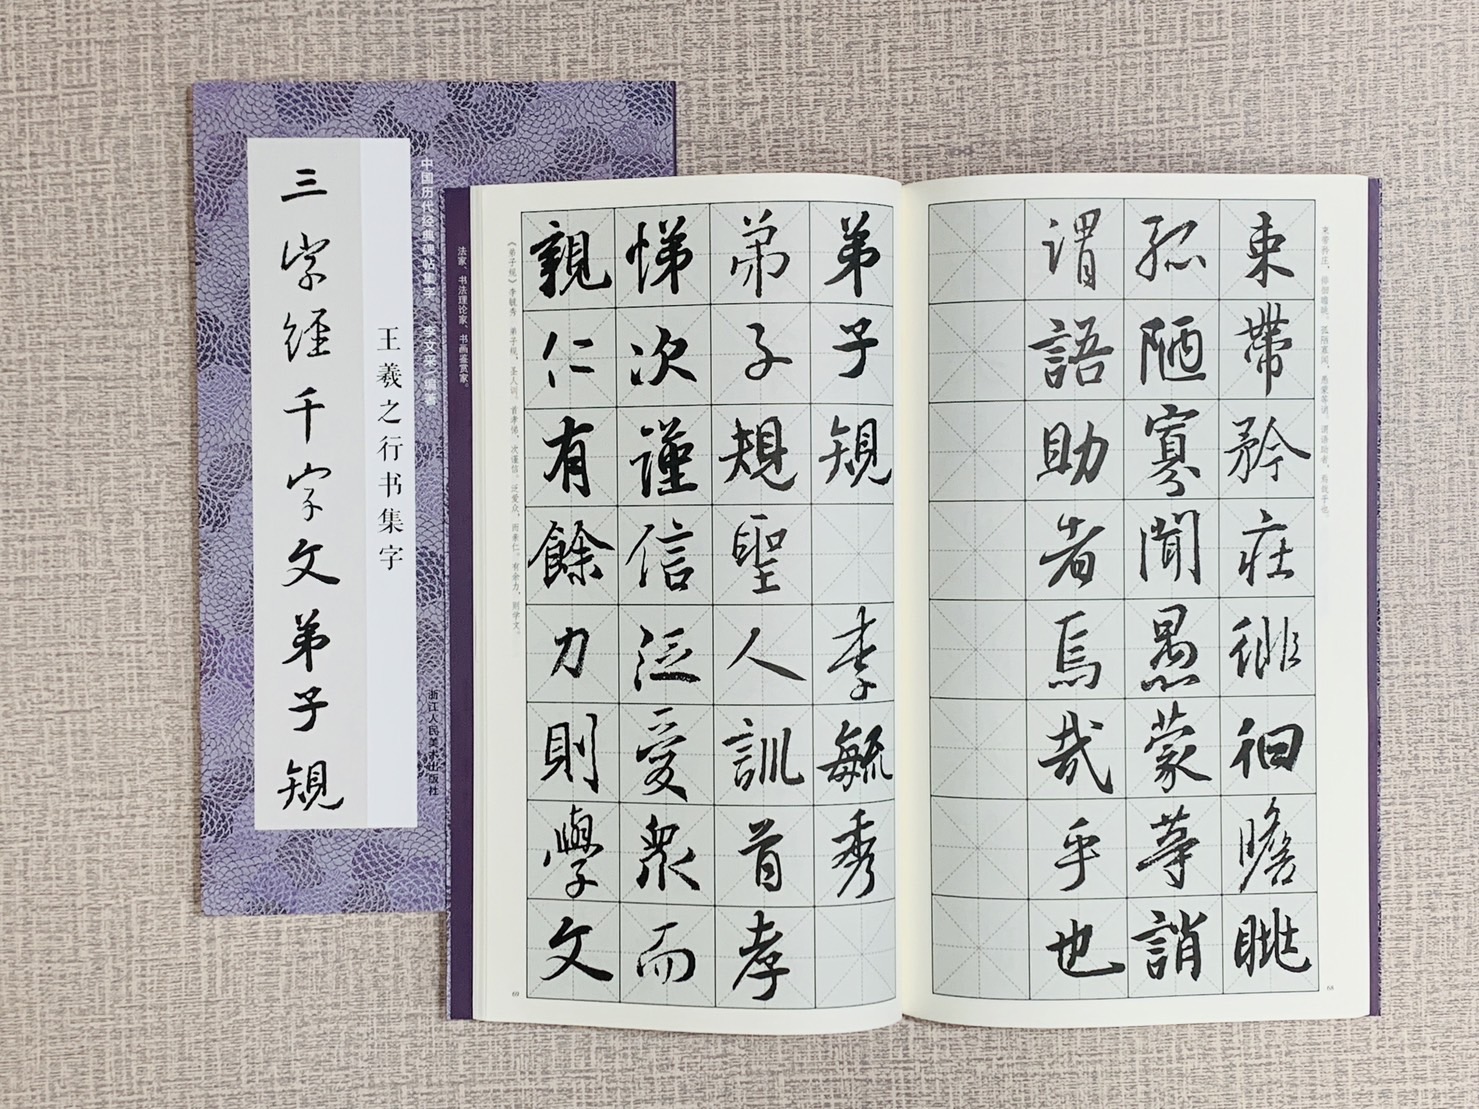 三字经千字文弟子规
王羲之行书集字
中国历代经典碑帖集字 李文采 编纂
浙江人民美术出版社
法家、书法理论家、书画鉴赏家。
束带矜庄，徘徊瞻眺。孤陋寡闻，愚蒙等诮。谓语助者，焉哉乎也。
束帶矜莊徘徊瞻眺
孤陋寡聞愚蒙等誚
謂語助者焉哉乎也
68
弟子規 李毓秀
弟子規聖人訓首孝
悌次謹信泛愛衆而
親仁有餘力則學文
《弟子规》李毓秀 弟子规，圣人训。首孝悌，次谨信。泛爱众，而亲仁。有余力，则学文。
69